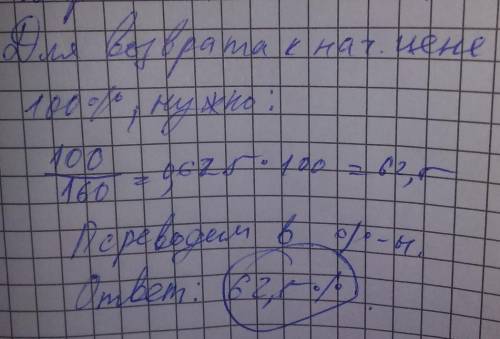 Для возврата к нач. цене
100%, нужно:
100
160 = 0,625 · 100 = 62,5
Переводим в %-ы.
Ответ: 62,5%.